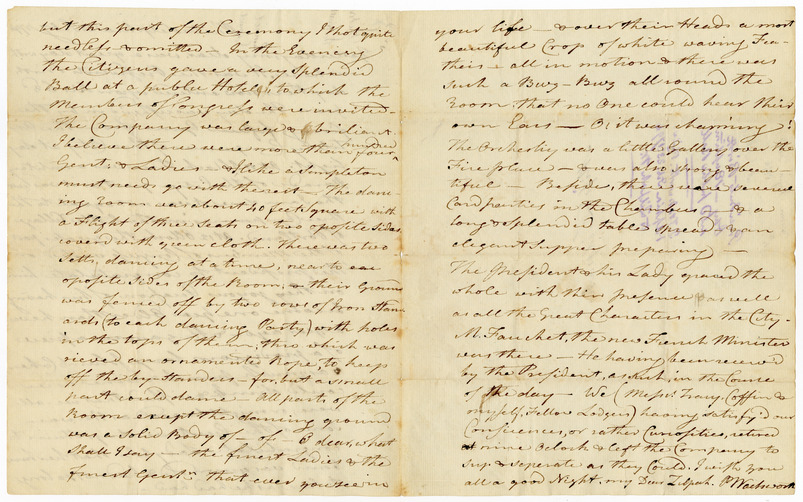 but this part of the Ceremony I thot quite
needless & omitted — In the Evenery
the Citizens gave a very Splendid
Ball at a public Hotel, to which the
Members of Congress were invited —
The Company was large & brilliant
I believe there were more than four hundred
Gents. & Ladies — & I like a Simpleton
must needs go with the rest — The danc
ing Room was about 40 feet square with
a Flight of three Seats on two oposite sides
coverd with green cloth. There was two
Setts, dancing at a time, near to each
oposite sides of the Room, & their Ground
was fenced off by two rows of Iron Stan
ards (to each dancing Party) with holes
in the tops of them, thro which was
rieved an ornamental Rope, to keep
off the by-Standers — for, but a small
part could dance — All parts of the
Room exept the dancing ground
was a Solid Body of — of — O dear, what
Shall I say — the finest Ladies & the
finest Gentn. that ever you see in
your life — & over their Heads a most
beautiful Crop of white waving Fea-
thers — all in motion & there was
such a Buz — Buz all round the
Room that no One could hear their
own Ears — O! it was charming!
The Orchestry was a little Gallery over the
Fire place — & was also strong & beau-
tiful — Besides, there were several
Card parties in the Chambers — & a
long & splendid table Spread & an
elegant Supper preparing —
The President & his Lady graced the
whole with their presence as well
as all the Great Characters in the City —
M. Fauchet, the new French Minister
was there — He having been received
by the President, as such, in the Course
of the day — We (Messrs. Tracy, Coffin &
myself, Fellow Lodgers) having satisfyd our
Consciences, or rather Curiosities, retired
at nine O'clock & left the Company to
Sup & seperate as they Could. I wish you
all a good Night, my Dear Zilpah. P Wadsworth